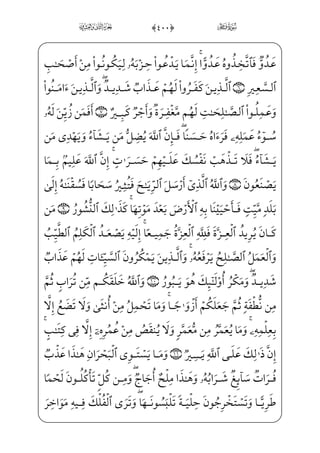 الجزء الثاني والعشرون ﴿٤٠٠﴾ سورة فاطر
عَدُوٌّ فَٱتَّخِذُوهُ عَدُوًّا ۚ إِنَّمَا يَدْعُوا۟ حِزْبَهُۥ لِيَكُونُوا۟ مِنْ أَصْحَـٰبِ
ٱلسَّعِيرِ ٱلَّذِينَ كَفَرُوا۟ لَهُمْ عَذَابٌ شَدِيدٌ ۖ وَٱلَّذِينَ ءَامَنُوا۟
وَعَمِلُوا۟ ٱلصَّـٰلِحَـٰتِ لَهُم مَّغْفِرَةٌ وَأَجْرٌ كَبِيرٌ أَفَمَن زُيِّنَ لَهُۥ
سُوٓءُ عَمَلِهِۦ فَرَءَاهُ حَسَنًا ۖ فَإِنَّ ٱللَّهَ يُضِلُّ مَن يَشَآءُ وَيَهْدِى مَن
يَشَآءُ ۖ فَلَا تَذْهَبْ نَفْسُكَ عَلَيْهِمْ حَسَرَٰتٍ ۚ إِنَّ ٱللَّهَ عَلِيمٌۢ بِمَا
يَصْنَعُونَ وَٱللَّهُ ٱلَّذِىٓ أَرْسَلَ ٱلرِّيَـٰحَ فَتُثِيرُ سَحَابًا فَسُقْنَـٰهُ إِلَىٰ
بَلَدٍ مَّيِّتٍ فَأَحْيَيْنَا بِهِ ٱلْأَرْضَ بَعْدَ مَوْتِهَا ۚ كَذَٰلِكَ ٱلنُّشُورُ مَن
كَانَ يُرِيدُ ٱلْعِزَّةَ فَلِلَّهِ ٱلْعِزَّةُ جَمِيعًا ۚ إِلَيْهِ يَصْعَدُ ٱلْكَلِمُ ٱلطَّيِّبُ
وَٱلْعَمَلُ ٱلصَّـٰلِحُ يَرْفَعُهُۥ ۚ وَٱلَّذِينَ يَمْكُرُونَ ٱلسَّيِّـَٔاتِ لَهُمْ عَذَابٌ
شَدِيدٌ ۖ وَمَكْرُ أُو۟لَـٰٓئِكَ هُوَ يَبُورُ وَٱللَّهُ خَلَقَكُم مِّن تُرَابٍ ثُمَّ
مِن نُّطْفَةٍ ثُمَّ جَعَلَكُمْ أَزْوَٰجًا ۚ وَمَا تَحْمِلُ مِنْ أُنثَىٰ وَلَا تَضَعُ إِلَّا
بِعِلْمِهِۦ ۚ وَمَا يُعَمَّرُ مِن مُّعَمَّرٍ وَلَا يُنقَصُ مِنْ عُمُرِهِۦٓ إِلَّا فِى كِتَـٰبٍ ۚ
إِنَّ ذَٰلِكَ عَلَى ٱللَّهِ يَسِيرٌ وَمَا يَسْتَوِى ٱلْبَحْرَانِ هَـٰذَا عَذْبٌ
فُرَاتٌ سَآئِغٌ شَرَابُهُۥ وَهَـٰذَا مِلْحٌ أُجَاجٌ ۖ وَمِن كُلٍّ تَأْكُلُونَ لَحْمًا
طَرِيًّا وَتَسْتَخْرِجُونَ حِلْيَةً تَلْبَسُونَهَا ۖ وَتَرَى ٱلْفُلْكَ فِيهِ مَوَاخِرَ